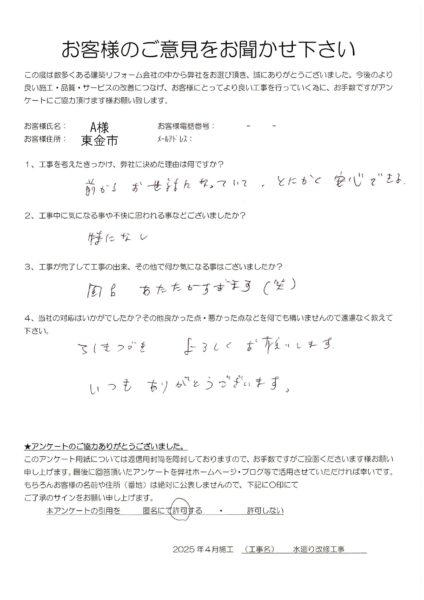 お客様のご意見をお聞かせ下さい
この度は数多くある建築リフォーム会社の中から弊社をお選び頂き、誠にありがとうございました。今後のより
良い施工・品質・サービスの改善につなげ、お客様にとってより良い工事を行っていく為に、お手数ですがアン
ケートにご協力頂けます様お願い致します。
お客様氏名： A様 お客様電話番号： - -
お客様住所： 東金市 メールアドレス：
1、工事を考えたきっかけ、弊社に決めた理由は何ですか？
前から お世話になっていて、とにかく 安心できる.
2、工事中に気になる事や不快に思われる事などございましたか？
特になし
3、工事が完了して工事の出来、その他で何か気になる事はございましたか？
あたたかすぎます (笑)
4、当社の対応はいかがでしたか？その他良かった点・悪かった点などを何でも構いませんので遠慮なく教えて
下さい。
ひきつづき よろしくお願いします.
いつも ありがとうございます。
★アンケートのご協力ありがとうございました。
このアンケート用紙については返信用封筒を同封しておりますので、お手数ですがご投函くださいます様お願い
申し上げます。最後に回答頂いたアンケートを弊社ホームページ・ブログ等で活用させていただければ幸いです。
もちろんお客様の名前や住所（番地）は絶対に公表しませんので、下記に○印にて
ご了承のサインをお願い申し上げます。
本アンケートの引用を 匿名にて許可する ・ 許可しない
2025年4月施工 （工事名） 水廻り改修工事